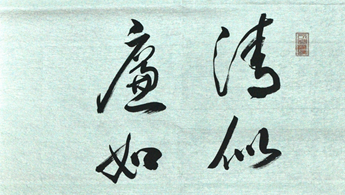 清似
廉如